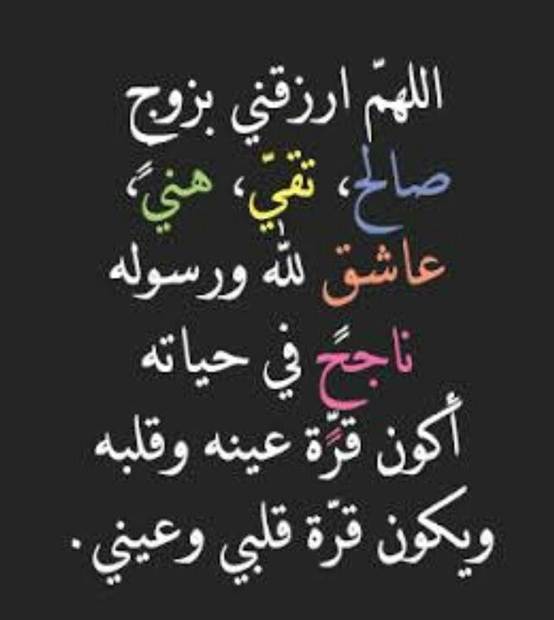 اللهمّ ارزقني بزوجٍ
صالح، تقيّ، هنيً،
عاشق لله ورسوله
ناجحً في حياته
أكون قرّة عينه وقلبه
ويكون قرّة قلبي وعيني.